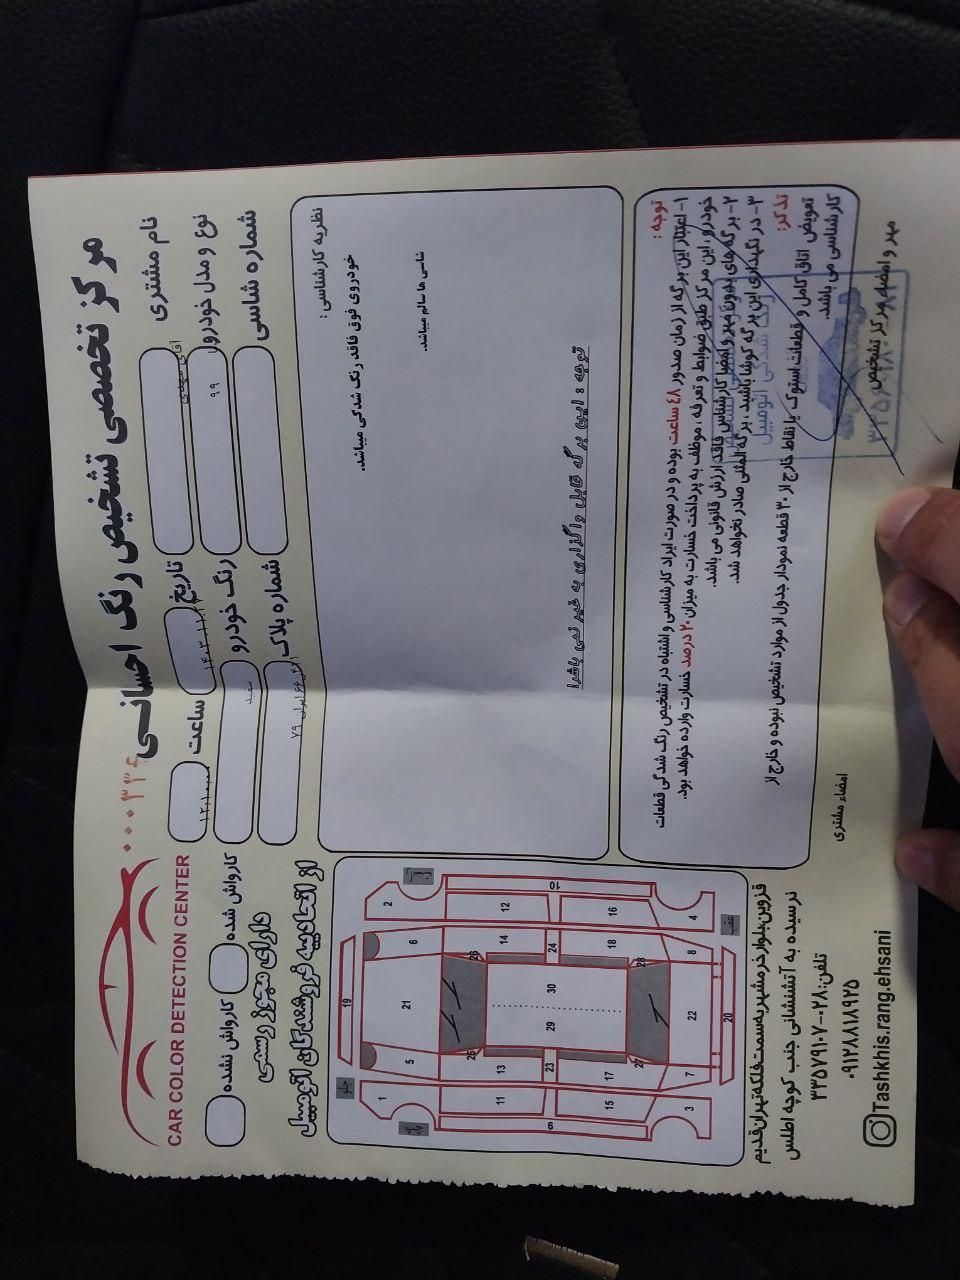 مرکز تخصصی تشخیص رنگ احسانی
۰۰۰۳۳۶
CAR COLOR DETECTION CENTER
نام مشتری
آقای
تاریخ
ساعت
نوع و مدل خودرو
۹۹
رنگ خودرو
سفید
شماره شاسی
شماره پلاک
ایران ۷۹
کارواش شده
کارواش نشده
دارای مجوز رسمی
از اتحادیه فروشندگان اتومبیل
نظریه کارشناسی :
خودروی فوق فاقد رنگ شدگی میباشد.
شاسی ها سالم میباشد.
توجه : این برگه قابل واگذاری به غیر نمی باشد!
توجه :
۱- اعتبار این برگه از زمان صدور ۴۸ ساعت بوده و در صورت ایراد کارشناسی و اشتباه در تشخیص رنگ شدگی قطعات
خودرو، این مرکز طبق ضوابط و تعرفه، موظف به پرداخت خسارت به میزان ۲۰ درصد خسارت وارده خواهد بود.
۲- برگه های بدون مهر و امضا کارشناس فاقد ارزش قانونی می باشد.
۳- در نگهداری این برگه کوشا باشید، برگه المثنی صادر نخواهد شد.
تذکر:
تعویض اتاق کامل و قطعات استوک یا نقاط خارج از ۳۰ قطعه نمودار جدول از موارد تشخیص نبوده و خارج از
کارشناسی می باشد.
مهر و امضاء مرکز تشخیص
امضاء مشتری
جلو
عقب
1
2
3
4
5
6
7
8
9
10
11
12
13
14
15
16
17
18
19
20
21
22
23
24
25
26
27
28
29
30
قزوین بلوار خرمشهر به سمت فلکه تهران قدیم
نرسیده به آتشنشانی جنب کوچه اطلس
تلفن: ۰۲۸-۳۳۵۷۹۱۰۷
۰۹۱۲۸۸۱۸۹۲۵
Tashkhis.rang.ehsani